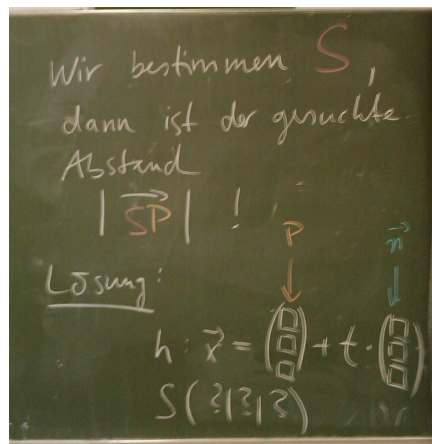 Wir bestimmen S,
dann ist der gesuchte
Abstand
| \overrightarrow{SP} | !
P \vec{n}
Lösung:
h: \vec{x} = (□ □ □) + t · (□ □ □)
S(?|?|?)